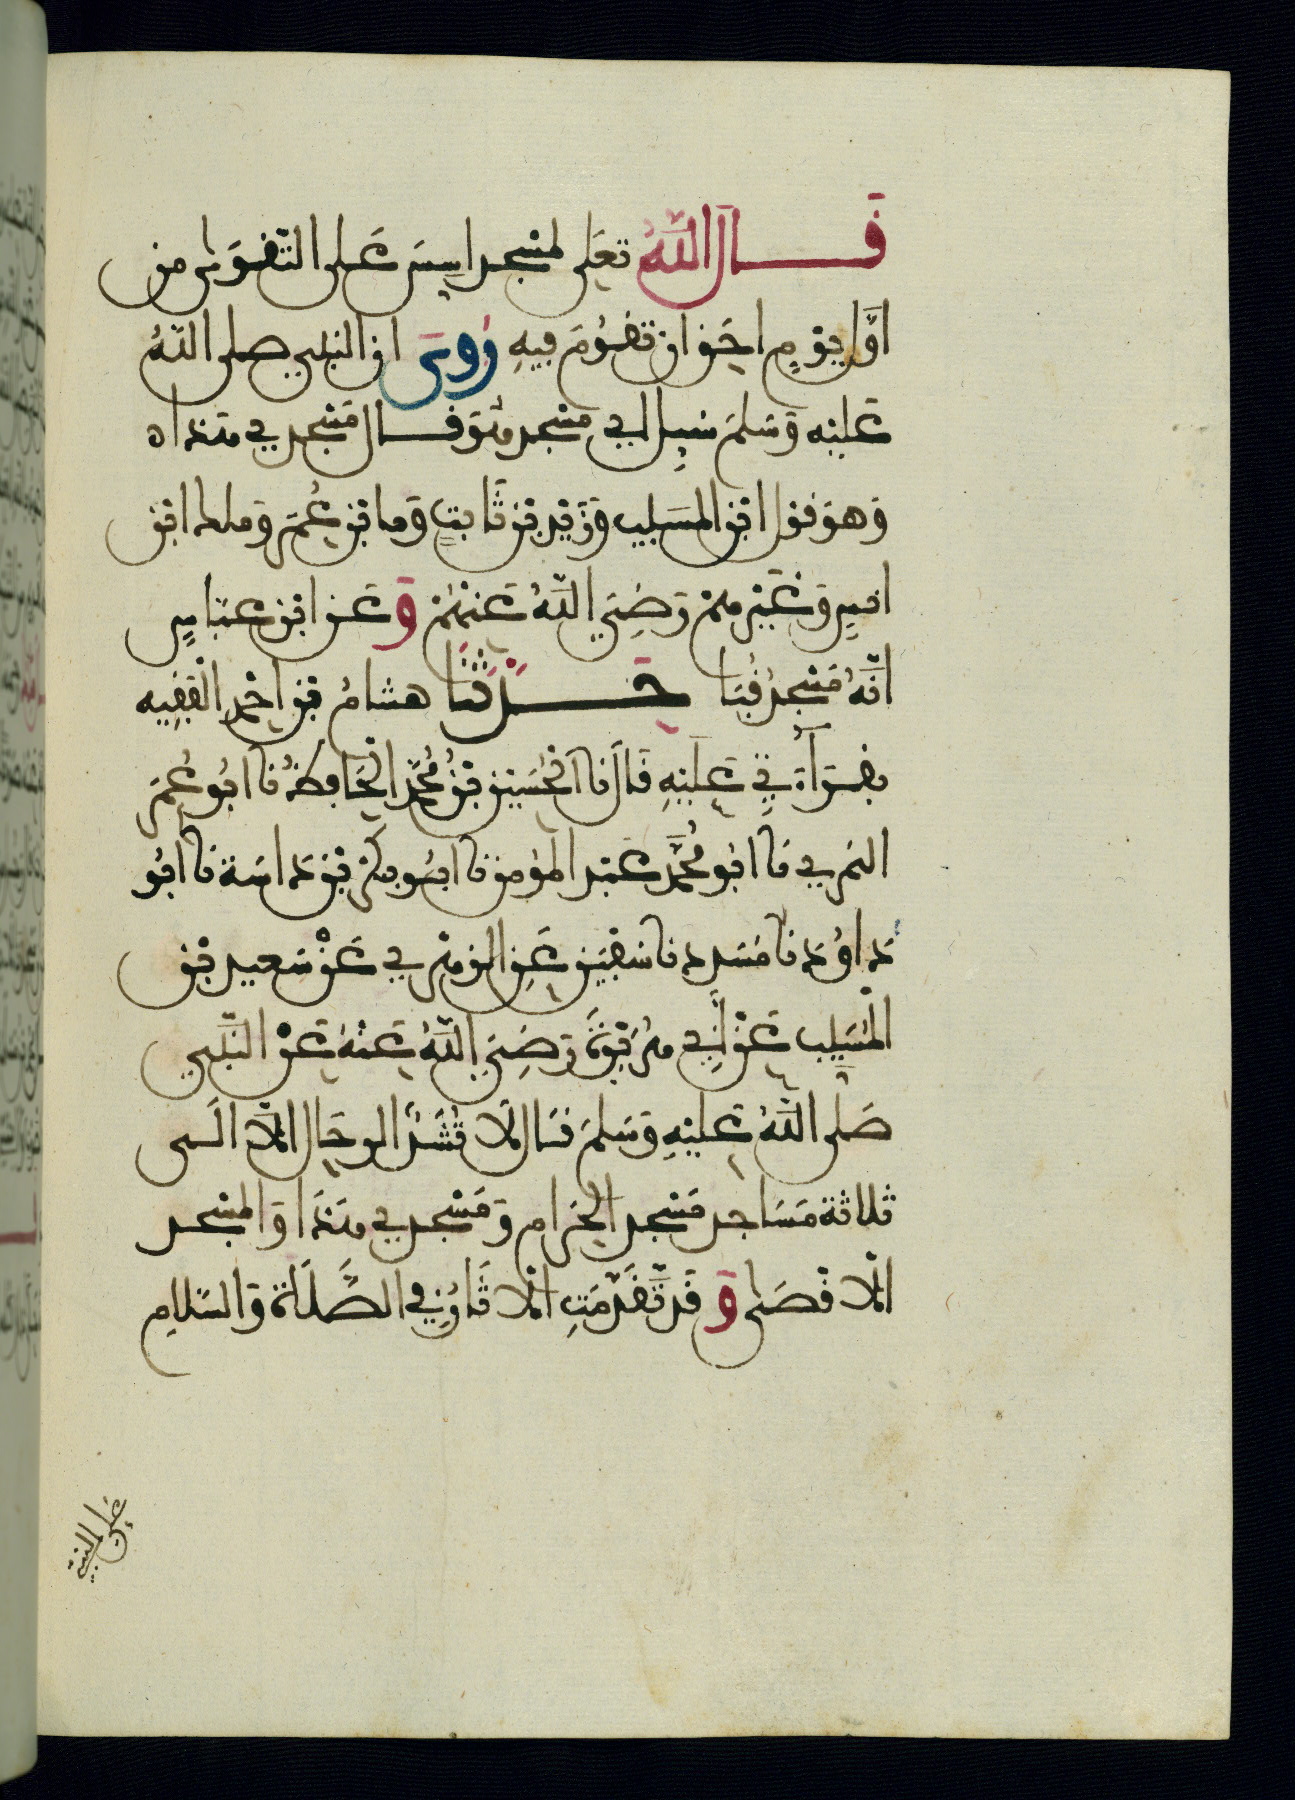 قال الله تعلى لمسجد اسس على التقوى من
اول يوم احق ان تقوم فيه روي ان النبي صلى الله
عليه وسلم سيل اي مسجد هو قال مسجدي هذا
وهو قول ابن المسيب وزيد بن ثابت وابن عمر وملك ابن
انس وغيرهم رضي الله عنهم وعن ابن عباس
انه مسجد قبا حدثنا هشام بن احمد الفقيه
بقراءتي عليه قال نا الحسين بن محمد الحافظ نا ابو عمر
النمري نا ابو محمد عبد المومن نا ابو بكر بن داسة نا ابو
داود نا مسدد نا سفين عن الزهري عن سعيد بن
المسيب عن ابي هريرة رضي الله عنه عن النبي
صلى الله عليه وسلم قال لا تشد الرحال الا الى
ثلاثة مساجد مسجد الحرام ومسجدي هذا والمسجد
الاقصى وقد تقدمت الاثار في الصلاة والسلام
على النبي